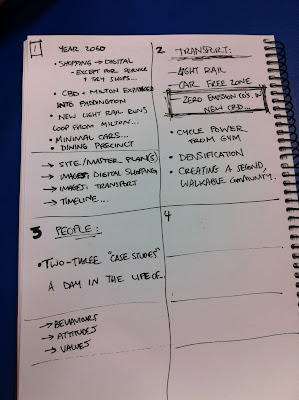 1 YEAR 2060
• SHOPPING → DIGITAL
- EXCEPT FOR SERVICE
& TRY SHOPS...
• CBD + MILTON EXPANDED
INTO PADDINGTON
• NEW LIGHT RAIL RUNS
LOOP FROM MILTON...
• MINIMAL CARS...
• DINING PRECINCT
→ SITE/MASTER PLAN(S)
→ IMAGES: DIGITAL SHOPPING
→ IMAGES: TRANSPORT
→ TIMELINE...
2 TRANSPORT:
- LIGHT RAIL
- CAR FREE ZONE
ZERO EMISSION CO'S. IN
NEW CBD...
• CYCLE POWER
FROM GYM
• DENSIFICATION
• CREATING A SECOND,
WALKABLE COMMUNITY.
3 PEOPLE:
• TWO-THREE "CASE STUDIES"
A DAY IN THE LIFE OF...
→ BEHAVIOURS
→ ATTITUDES
→ VALUES
4